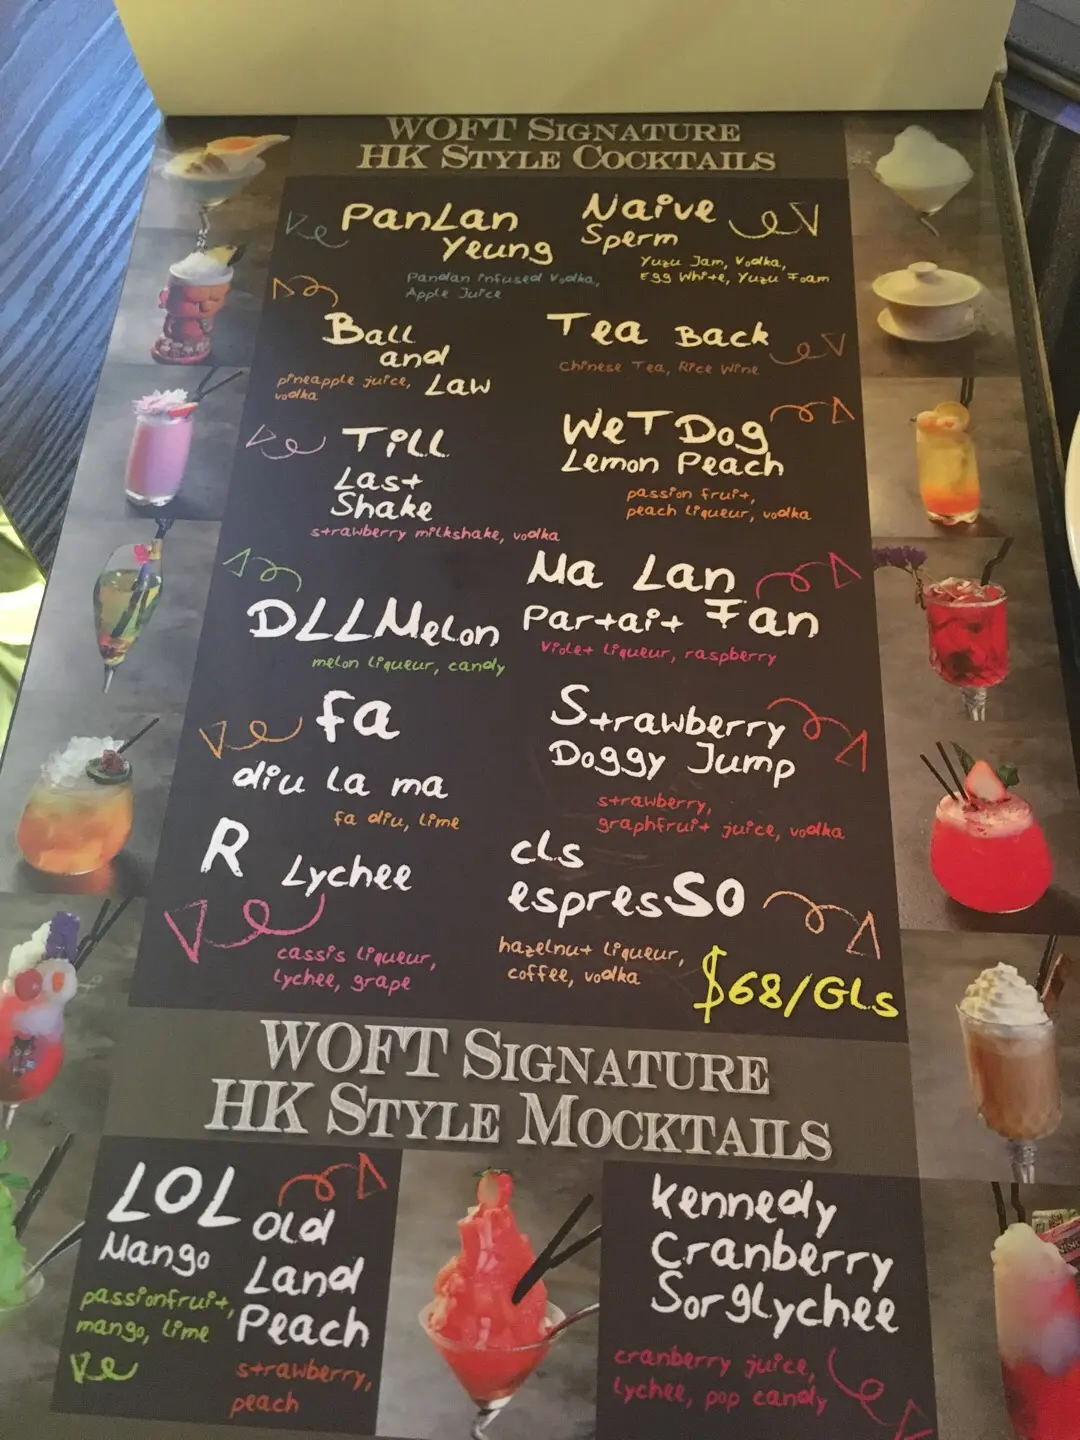 WOFT SIGNATURE
HK STYLE COCKTAILS
PanLan
Yeung
Pandan infused Vodka,
Apple Juice
Naive
Sperm
Yuzu Jam, Vodka,
Egg White, Yuzu Foam
Ball
and
Law
pineapple juice,
vodka
Tea Back
Chinese Tea, Rice Wine
Till
Last
Shake
strawberry milkshake, vodka
Wet Dog
Lemon Peach
passion fruit,
peach liqueur, vodka
DLLMelon
melon liqueur, candy
Ma Lan
Partait Fan
Violet liqueur, raspberry
fa
diu la ma
fa diu, lime
Strawberry
Doggy Jump
strawberry,
graphfruit juice, vodka
R Lychee
cassis liqueur,
lychee, grape
cls
espresSO
hazelnut liqueur,
coffee, vodka
$68/GLs
WOFT SIGNATURE
HK STYLE MOCKTAILS
LOL
Mango
passionfruit,
mango, lime
Old
Land
Peach
strawberry,
peach
Kennedy
Cranberry
Sorglychee
cranberry juice,
lychee, pop candy